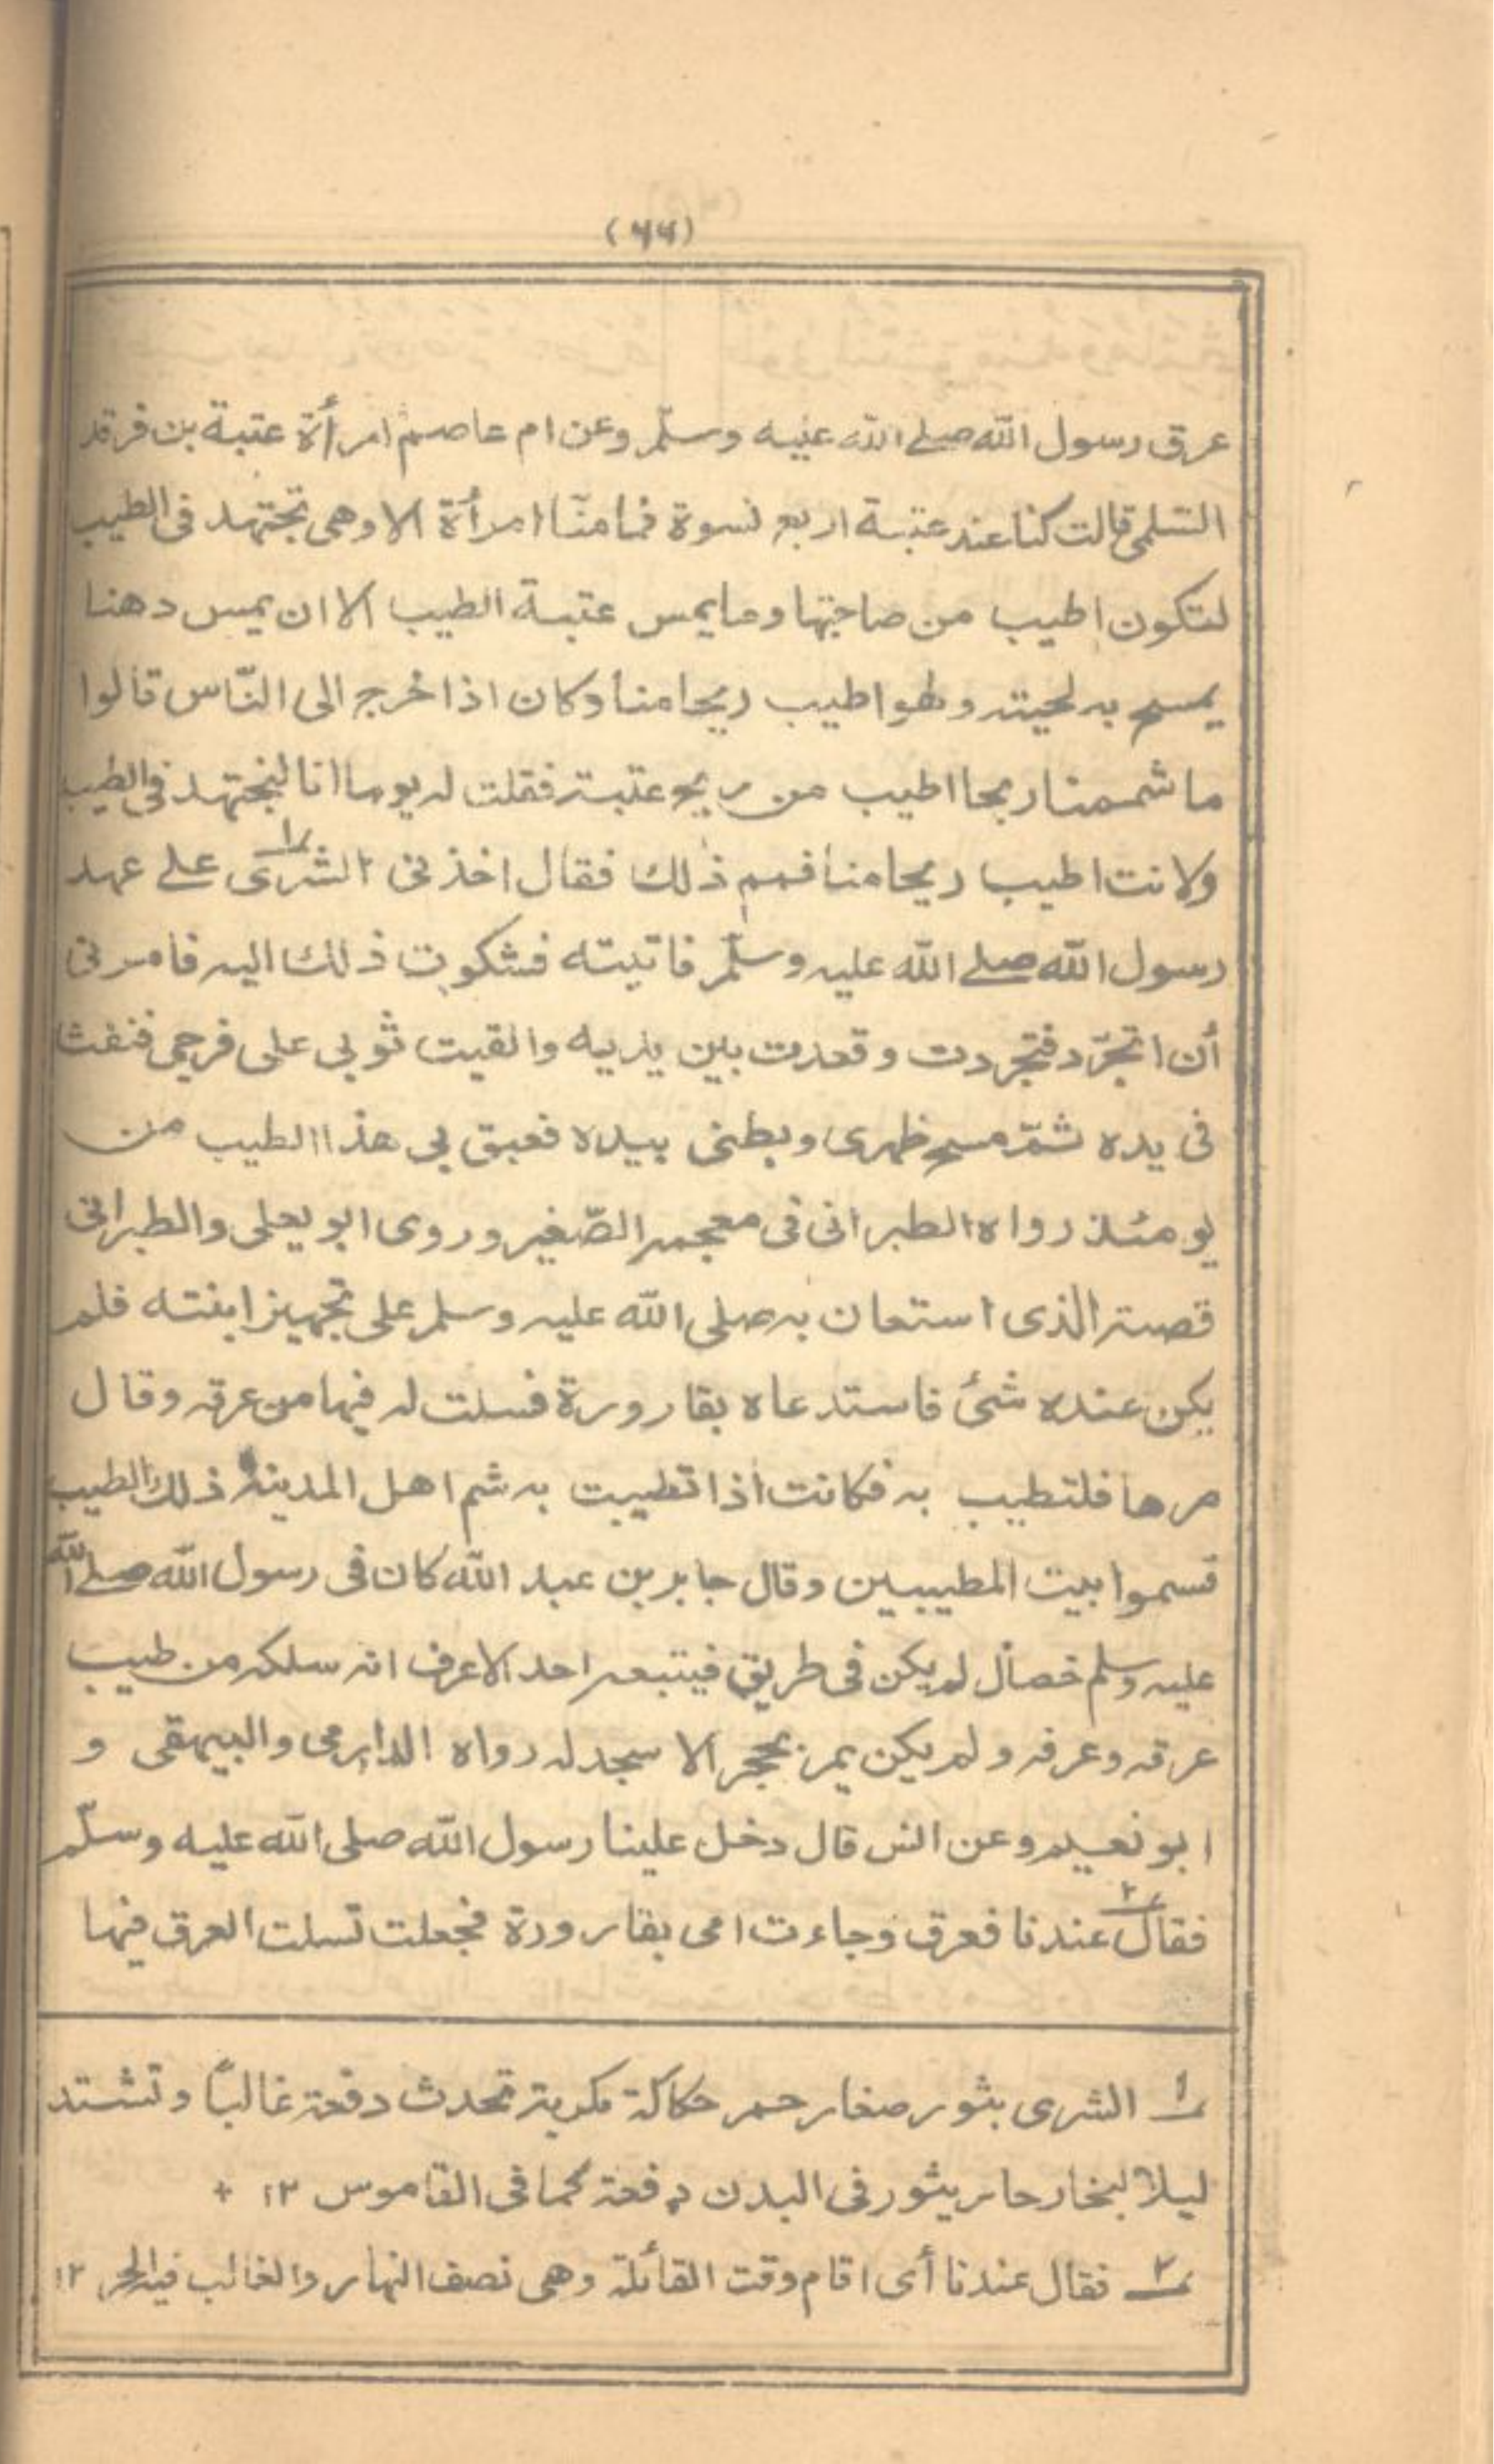 (۶۶)
عرق رسول الله صلے الله علیه وسلّم وعن ام عاصم امرأة عتبة بن فرقد
السّلمی قالت کنا عند عتبة اربع نسوة فما منّا امرأة الا وهی تجتهد فی الطیب
لتکون اطیب من صاحبتها وما یمس عتبة الطیب الا ان یمس دهنا
یمسح به لحیته ولهو اطیب ریحا منا وکان اذا خرج الی النّاس قالوا
ما شممنا ریحا اطیب من ریح عتبة فقلت له یوما انا لنجتهد فی الطیب
ولانت اطیب ریحا منا فمم ذٰلک فقال اخذنی الشری ؎۱ علے عهد
رسول الله صلے الله علیه وسلّم فاتیته فشکوت ذلک الیه فامرنی
أن اتجرّد فتجردت وقعدت بین یدیه والقیت ثوبی علی فرجی فنفث
فی یده ثمّ مسح ظهری وبطنی بیده فعبق بی هذا الطیب من
یومئذ رواه الطبرانی فی معجمه الصّغیر وروی ابو یعلی والطبرانی
قصة الذی استعان به صلی الله علیه وسلم علی تجهیز ابنته فلم
یکن عنده شئ فاستدعاه بقارورة فسلت له فیها من عرقه وقال
مرها فلتطیب به فکانت اذا تطیبت به شم اهل المدینة ذلک الطیب
فسموا بیت المطیبین وقال جابر بن عبد الله کان فی رسول الله صلے الله
علیه وسلم خصال لم یکن فی طریق فیتبعه احد الا عرف انه سلکه من طیب
عرقه وعرفه ولم یکن یمر بحجر الا سجد له رواه الدارمی والبیهقی و
ابو نعیم وعن انس قال دخل علینا رسول الله صلی الله علیه وسلّم
فقال ؎۲ عندنا فعرق وجاءت امی بقارورة فجعلت تسلت العرق فیها
؎۱ الشری بثور صغار حمر حکاکة مکربة تحدث دفعة غالبًا وتشتد
لیلا لبخار حار یثور فی البدن دفعة کما فی القاموس ۱۲ +
؎۲ فقال عندنا أی اقام وقت القائلة وهی نصف النهار والغالب فیه الحر ۱۲